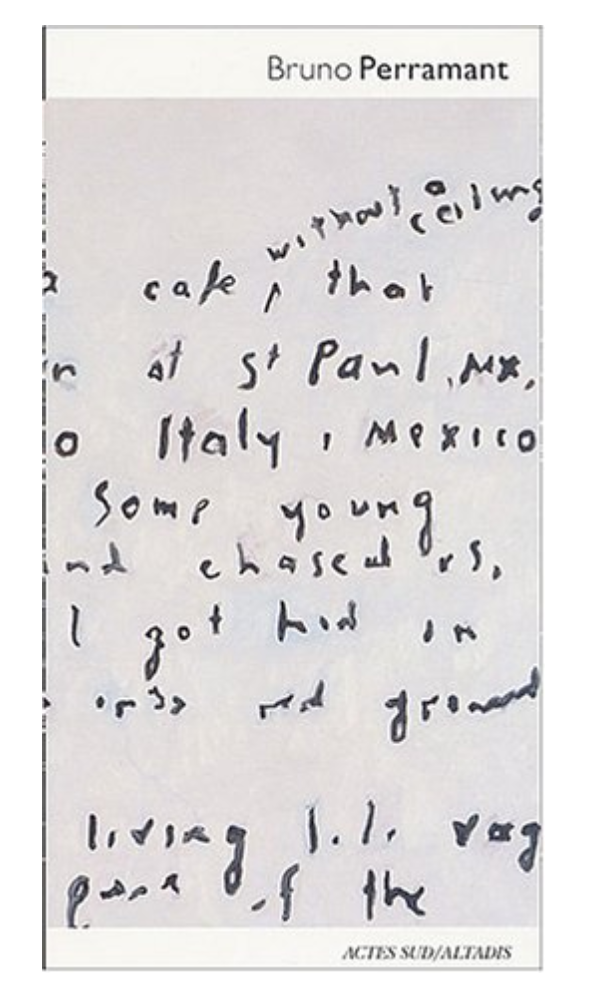 Bruno Perramant
without a ceiling
a cafe, that
at St Paul, MX,
o Italy, Mexico
Some young
nd chased us,
I got hid in
red ground
living
of the
ACTES SUD/ALTADIS